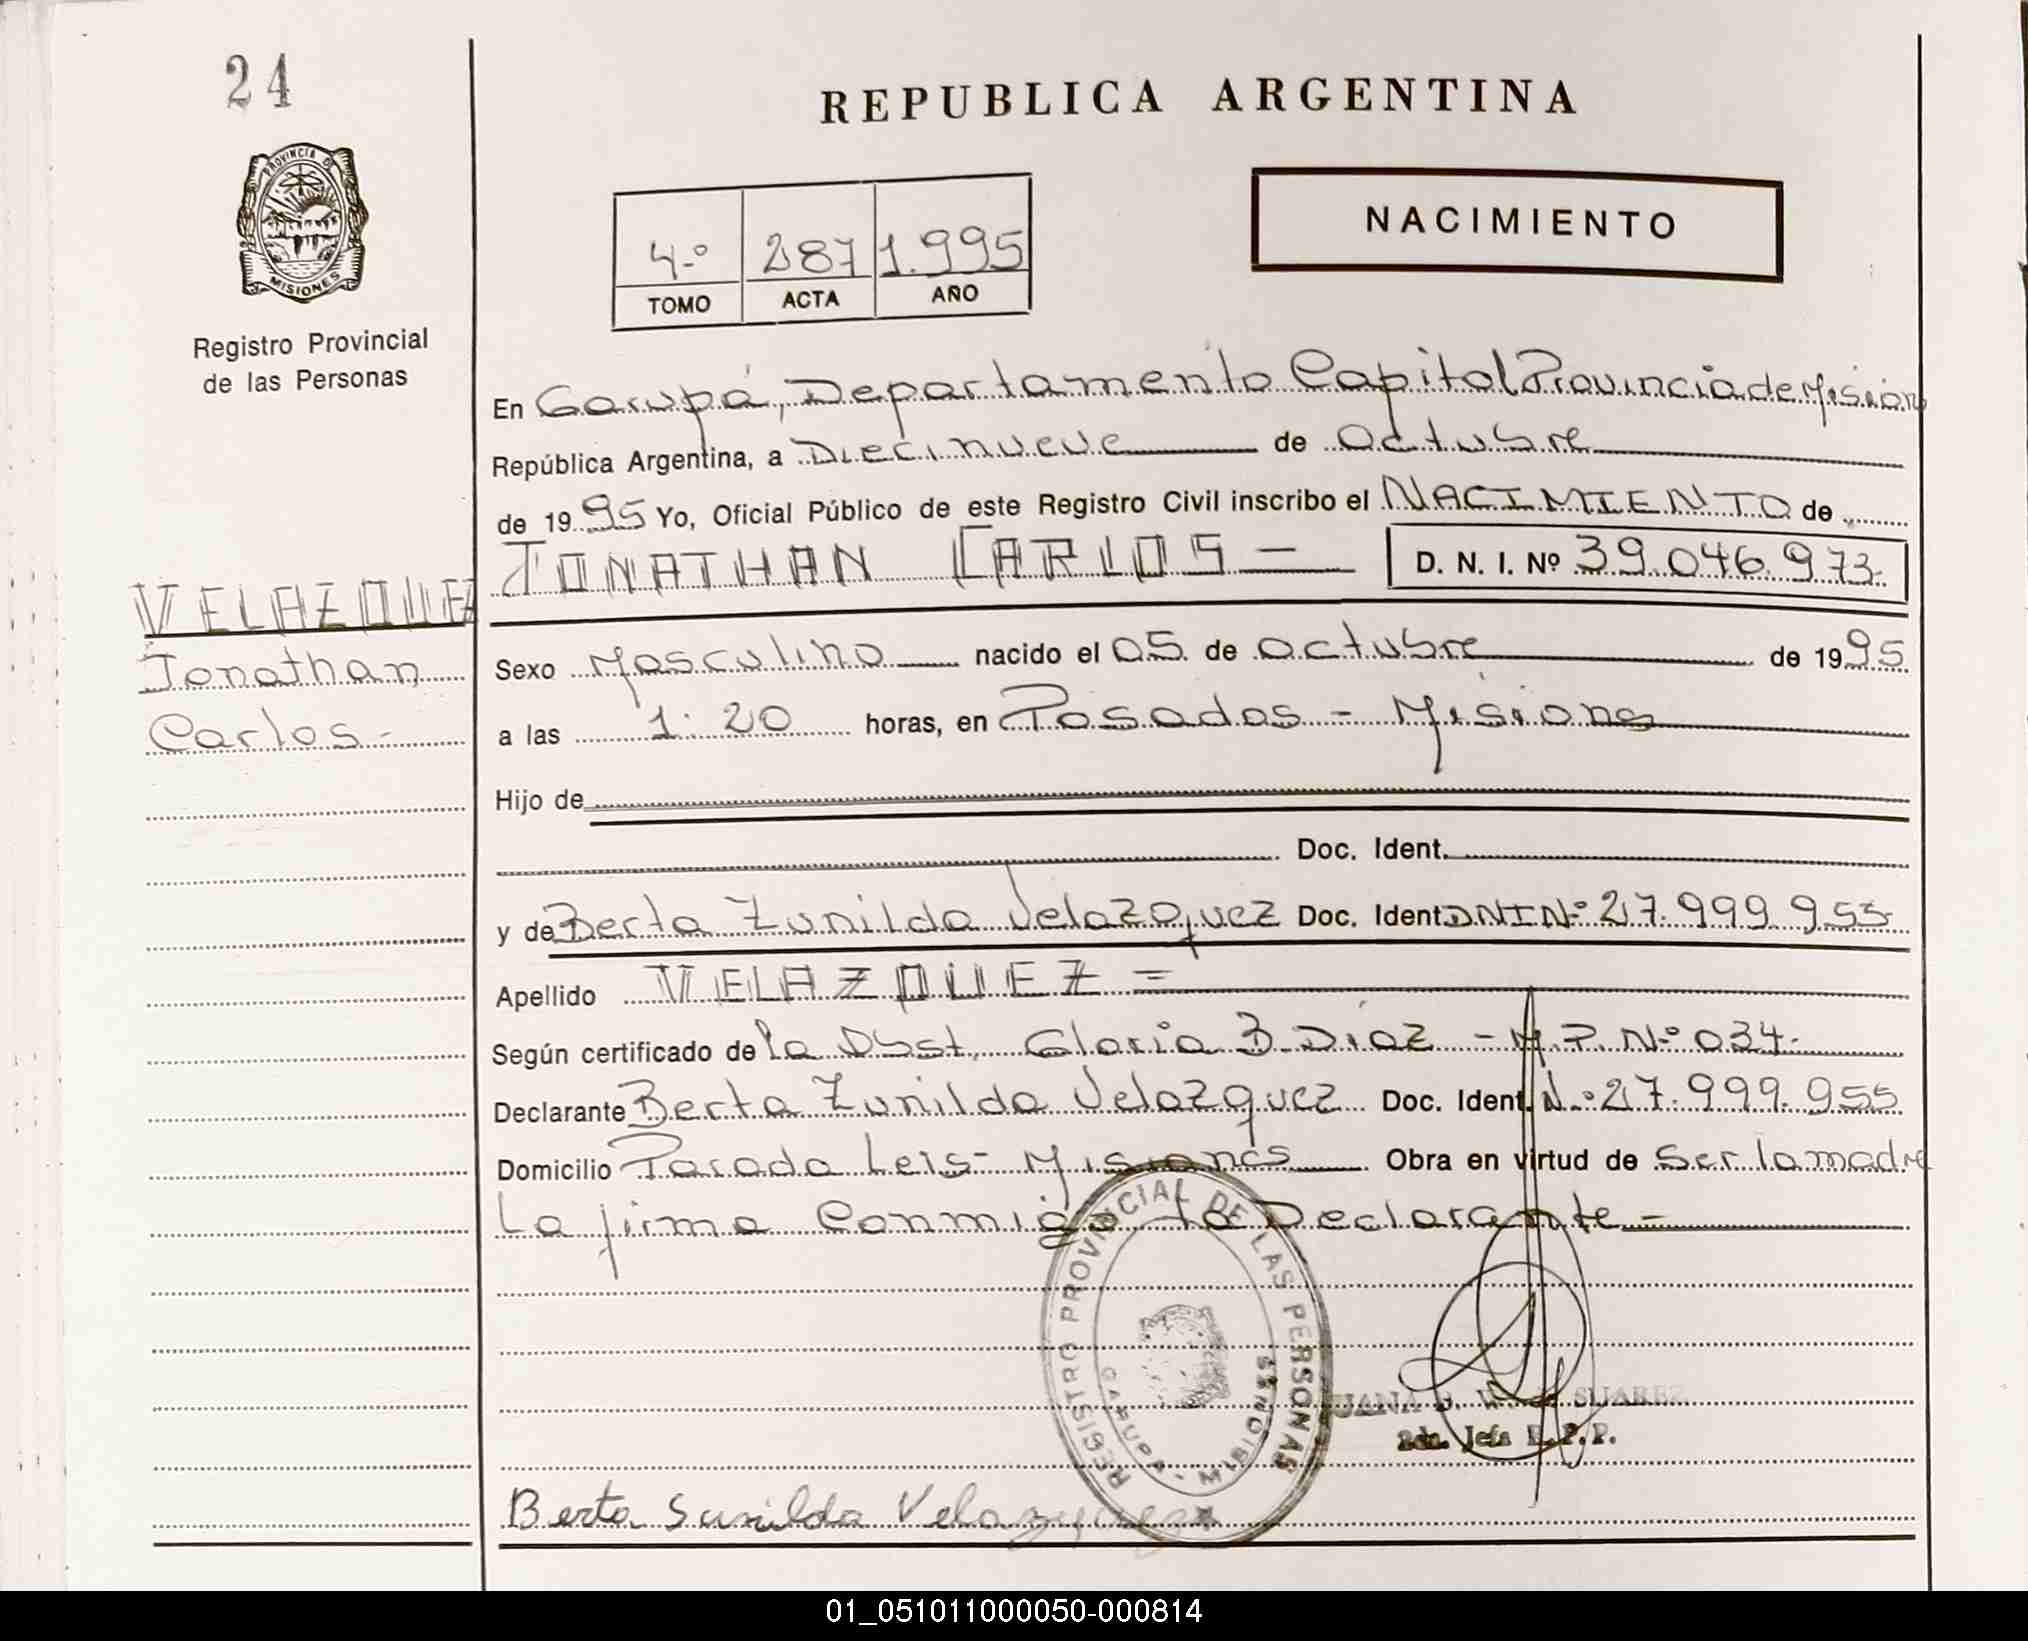 24
REPUBLICA ARGENTINA
PROVINCIA DE
MISIONES
NACIMIENTO
4.º 287 1.995
TOMO ACTA AÑO
Registro Provincial
de las Personas
En Garupá, Departamento Capital Provincia de Mision
República Argentina, a Diecinueve de octubre
de 1995 Yo, Oficial Público de este Registro Civil inscribo el NACIMIENTO de
JONATHAN CARLOS — D. N. I. Nº 39.046.973.
VELAZQUEZ
Jonathan
Carlos-
Sexo Masculino nacido el 05 de octubre de 1995
a las 1:20 horas, en Posadas - Misiones
Hijo de
Doc. Ident.
y de Berta Zunilda Velazquez Doc. Ident. DNI Nº 27.999.955
Apellido VELAZQUEZ =
Según certificado de la Obst. Gloria B. Díaz - M.P. Nº 034.
Declarante Berta Zunilda Velazquez Doc. Ident. Nº 27.999.955
Domicilio Parada Leis- Misiones Obra en virtud de Ser la madre
La firma Conmigo la Declarante -
REGISTRO PROVINCIAL DE LAS PERSONAS
GARUPA - MISIONES
JUANA B. SUAREZ
Jefa R.P.P.
Berta Sunilda Velazquez
01_051011000050-000814